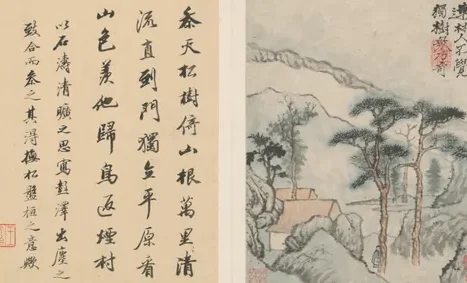 連林人不覺
獨樹衆乃奇
叅天松樹倚山根萬里清
流直到門獨立平原看
山色羨他歸鳥返煙村
以石濤清曠之思寫彭澤出塵之
致合而叅之其得撫松盤桓之意歟